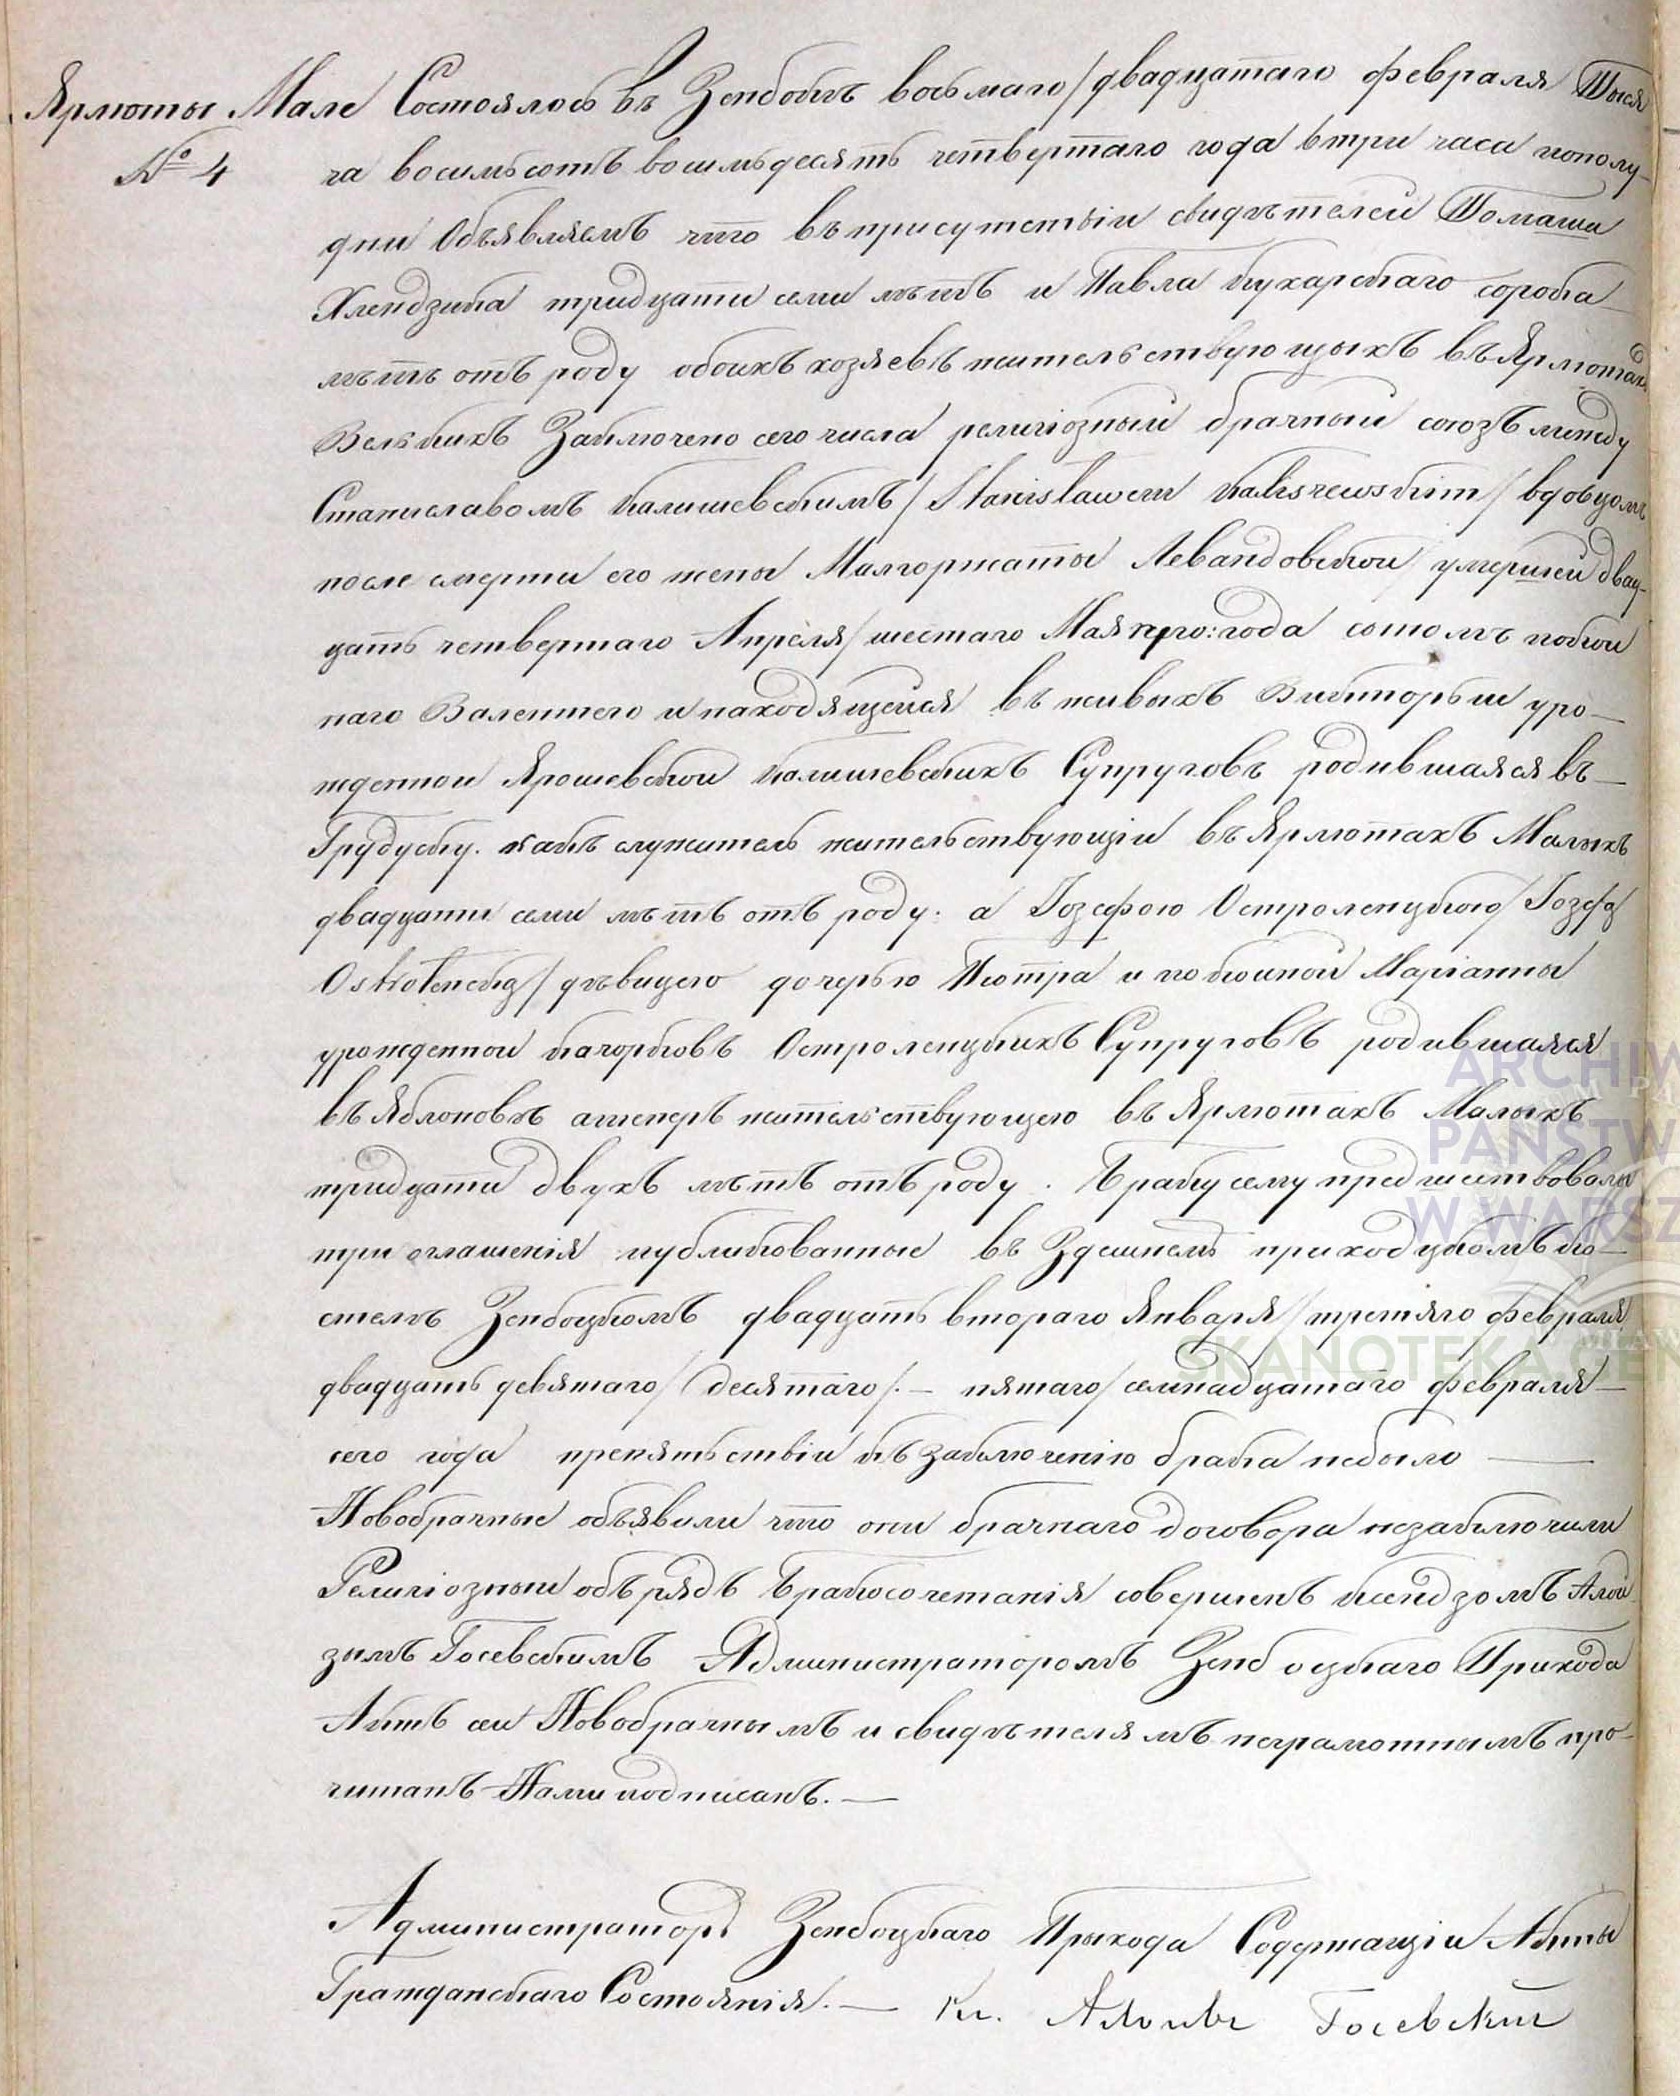 Ярлюты Мале
№ 4
Состоялось въ Зембокъ восьмаго/двадцатаго февраля Тыся
ча восимьсотъ восимьдесять четвертаго года втри часа пополу-
дни Объявляемъ что въ присутствіи свидѣтелей Томаша
Хлендзика тридцати семи лѣтъ и Павла Кухарскаго сорока
лѣтъ отъ роду обоихъ хозяевъ жительствующыхъ въ Ярлютахъ
Вельких Заключено сего числа религіозный брачный союзъ между
Станиславомъ Калишевскимъ /Stanisławem Kaliszewskim/ вдовцомъ
после смерти его жены Малгоржаты Левандовской умершей двад-
цать четвертаго Апреля/шестаго Мая пр:го:года сыномъ покой
наго Валентего и находящейся въ живыхъ Викторыи уро-
жденной Ярошевской Калишевскихъ Супруговъ родившаяся въ
Грудуску. какъ служитель жительствующій въ Ярлютахъ Малыхъ
двадцати семи лѣтъ отъ роду: а Іозефою Остроленцкою/Józefą
Ostrołencką/ дѣвицею дочерью Піотра и покойной Маріанны
урожденной Качорковъ Остроленцкихъ Супруговъ родившаяся
въ Яблоновѣ атеперъ жительствующею въ Ярлютахъ Малыхъ
тридцати двухъ лѣтъ отъ роду. Браку сему предшествовалы
три оглашенія публикованные въ Здешнемъ приходцкомъ ко-
стелѣ Зембоцкомъ двадцать втораго Января/третяго февраля
двадцать девятаго/десятаго/.- пятаго/семнадцатаго февраля-
сего года препятьствій къ заключенію брака небыло
Новобрачные объявили что они брачнаго договора незаключили
Религіозный обърядъ Бракосочетанія совершенъ ксендзомъ Алои
зымъ Госевскимъ Администраторомъ Зембоцкаго Прихода
Актъ сей Новобрачнымъ и свидѣтелямъ неграмотнымъ про-
читанъ Нами подписанъ.-
Администраторъ Зембоцкаго Прыхода Содержащій Акты
Гражданскаго Состоянія.- Кс. Алоизы Госевскій
ARCHIW
PAŃSTW
W WARSZ
SKANOTEKA.GEN